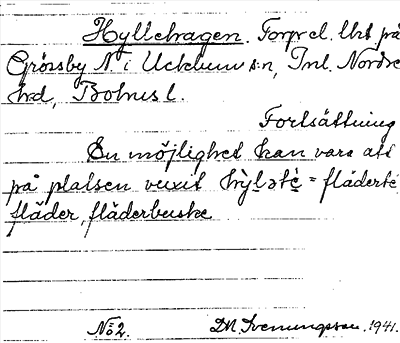 Hyllehagen. Torprel. Uts på
Grössby N i Ucklum sn, Inl. Nordre
hrd, Bohusl.
Fortsättning
En möjlighet kan vara att
på platsen vuxit hỳlәtè = fläderte
fläder, fläderbuske
No 2. DM. Evenungsson. 1941.